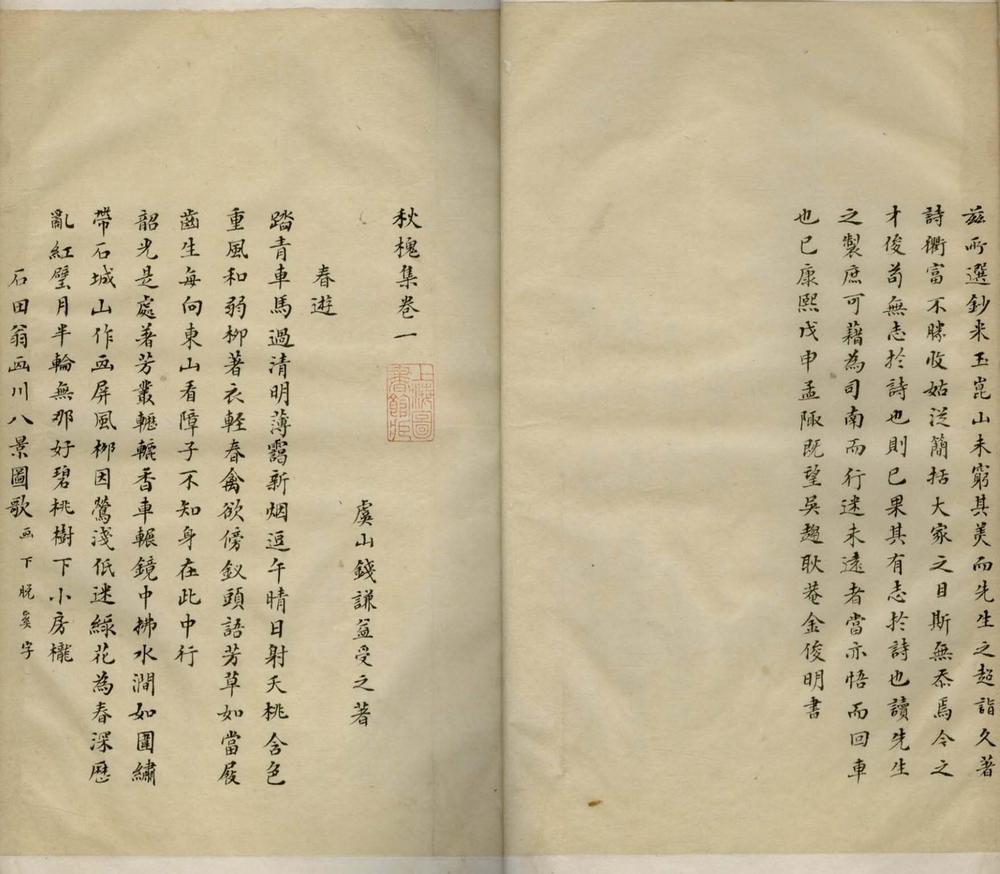 茲所選鈔米玉崑山未窮其美而先生之超詣久著
詩衢富不勝收姑從簡括大家之目斯無忝焉今之
才俊苟無志於詩也則已果其有志於詩也讀先生
之製庶可藉為司南而行迷未遠者當亦悟而回車
也已康熙戊申孟陬既望吳趨耿菴金俊明書
秋槐集卷一
虞山錢謙益受之著
春遊
踏青車馬過清明薄靄新烟逗午晴日射夭桃含色
重風和弱柳著衣軽春禽欲傍釵頭語芳草如當屐
齒生每向東山看障子不知身在此中行
韶光是處著芳叢轣轆香車輾鏡中拂水澗如圍繡
帶石城山作画屏風栁因鶯淺低迷綠花為春深歷
亂紅璧月半輪無那好碧桃樹下小房櫳
石田翁画川八景圖歌画下脫奚字
上海圖書館藏